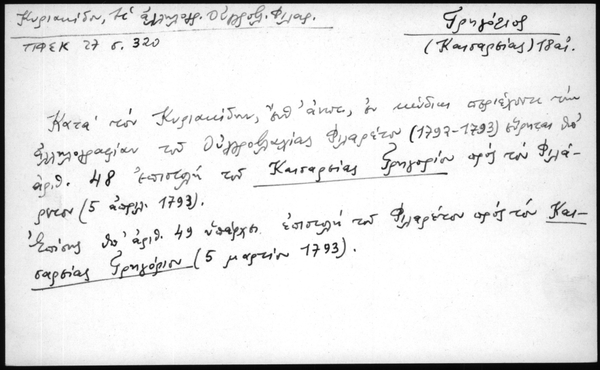 Κυριακίδου, Ἡ ἀλληλογρ. Οὑγγροβλ. Φιλαρ.
ΠΘΕΚ 27 σ. 320
Γρηγόριος
(Καισαρείας) 18 αἰ.
Κατὰ τὸν Κυριακίδην, ἔνθ' ἀνωτ., ἐν κώδικι περιέχοντι τὴν
ἀλληλογραφίαν τοῦ Οὑγγροβλαχίας Φιλαρέτου (1792-1793) εὕρηται ὑπ'
ἀριθ. 48 ἐπιστολὴ τοῦ Καισαρείας Γρηγορίου πρὸς τὸν Φιλά-
ρετον (5 ἀπριλ. 1793).
Ἐπίσης ὑπ' ἀριθ. 49 ὑπάρχει ἐπιστολὴ τοῦ Φιλαρέτου πρὸς τὸν Και-
σαρείας Γρηγόριον (5 μαρτίου 1793).